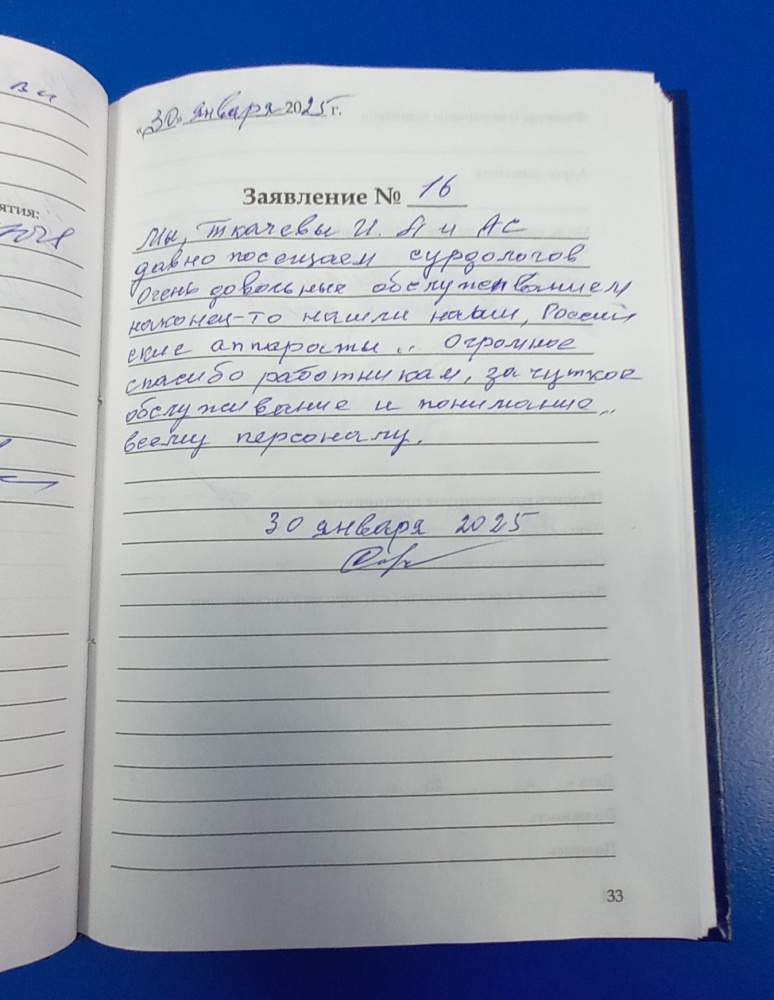 ви
ятия:
«30» января 2025 г.
Заявление № 16
Мы, Ткачевы И. А и АС
давно посещаем сурдологов
Очень довольные обслуживанием
наконец-то нашли наши, Россий
ские аппараты.. Огромное
спасибо работникам, за чуткое
обслуживание и понимание..
всему персоналу.
30 января 2025
33